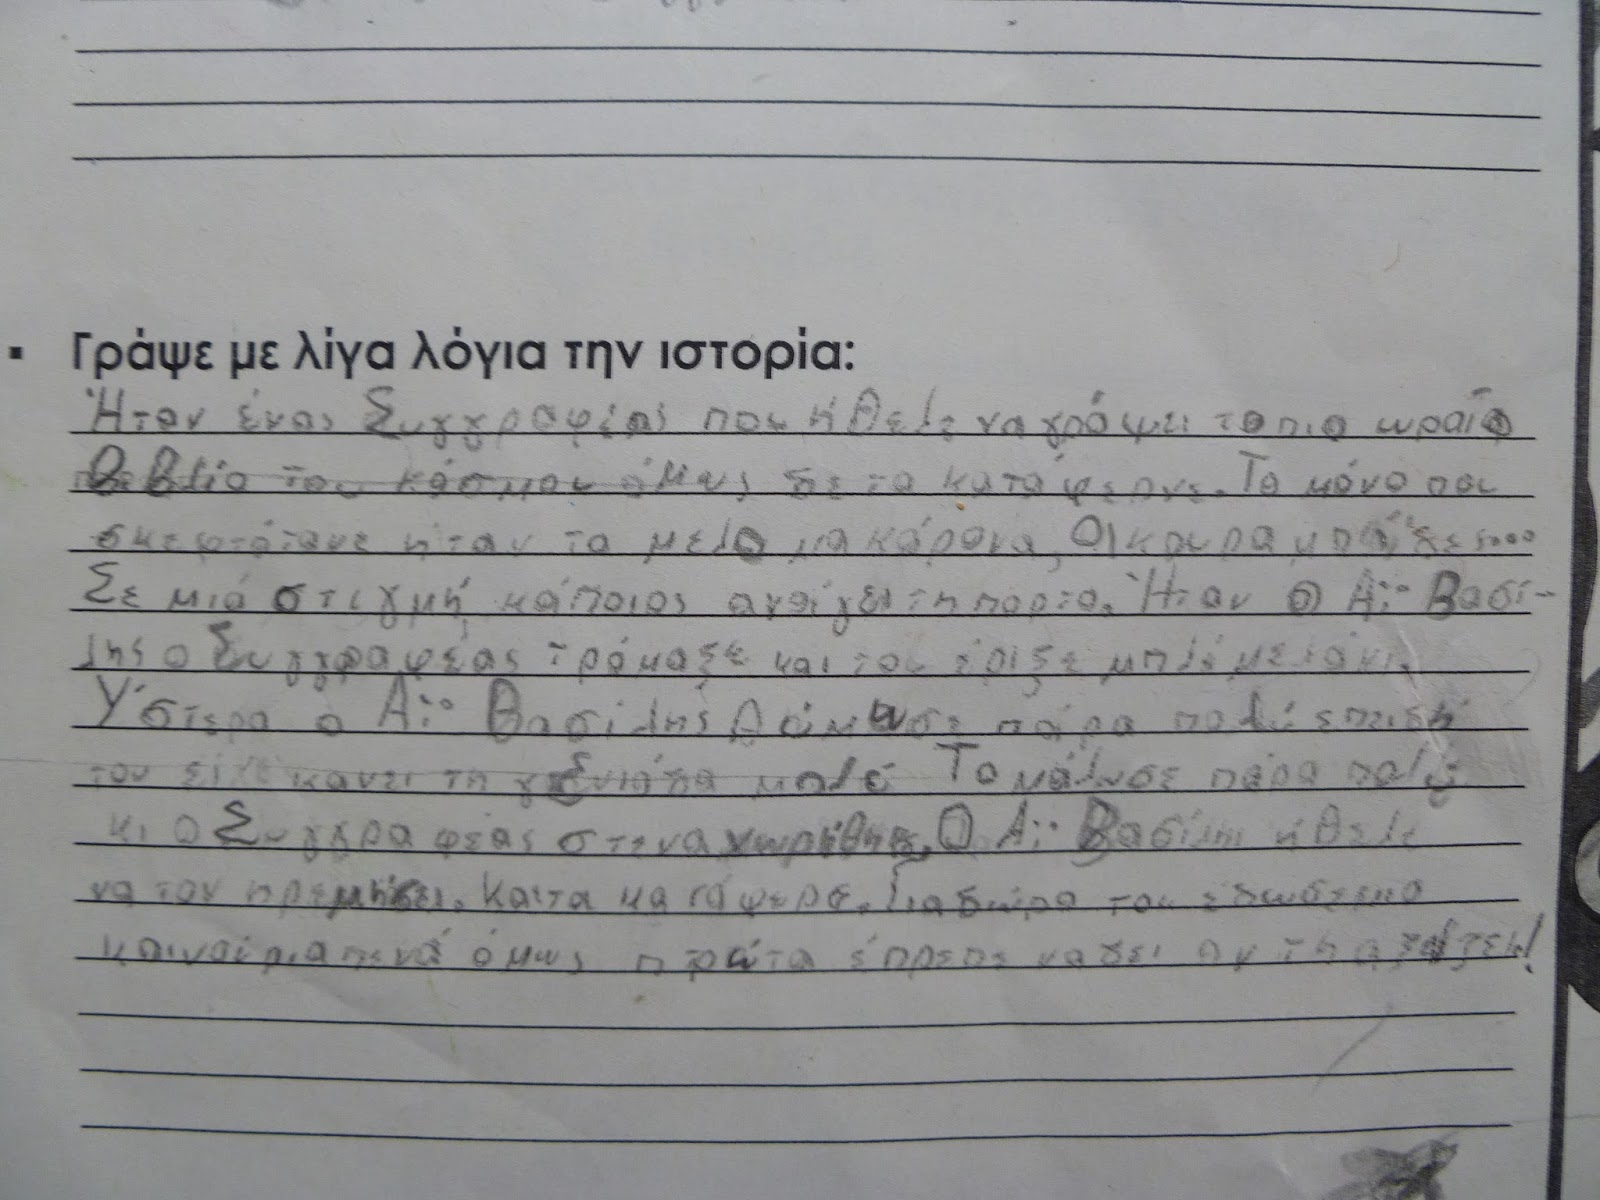 Γράψε με λίγα λόγια την ιστορία:
Ήταν ένας Συγγραφέας που ήθελε να γράψει το πιο ωραίο
βιβλίο του κόσμου όμως δε τα κατάφερνε. Το μόνο που
σκεφτότανε ήταν τα μελομακάρονα, Οι κουραμπιέδες....
Σε μιά στιγμή κάποιος ανοίγει τη πόρτα. Ήταν ο Αϊ- Βασί-
λης ο Συγγραφέας τρόμαξε και του έριξε μπλέ μελάνι.
Ύστερα ο Αϊ- Βασίλης θύμωσε πάρα πολύ επειδή
του είχε κανει τη γενιάδα μπλέ Το μάλωσε πάρα πολύ
κι ο Συγγραφέας στεναχωρήθηκε. Ο Αϊ- Βασίλης ήθελε
να τον ηρεμήσει. Και τα κατάφερε. Για δώρο του έδωσε
καινούρια πενά όμως πρώτα έπρεπε να δει αν τη αξίζει!